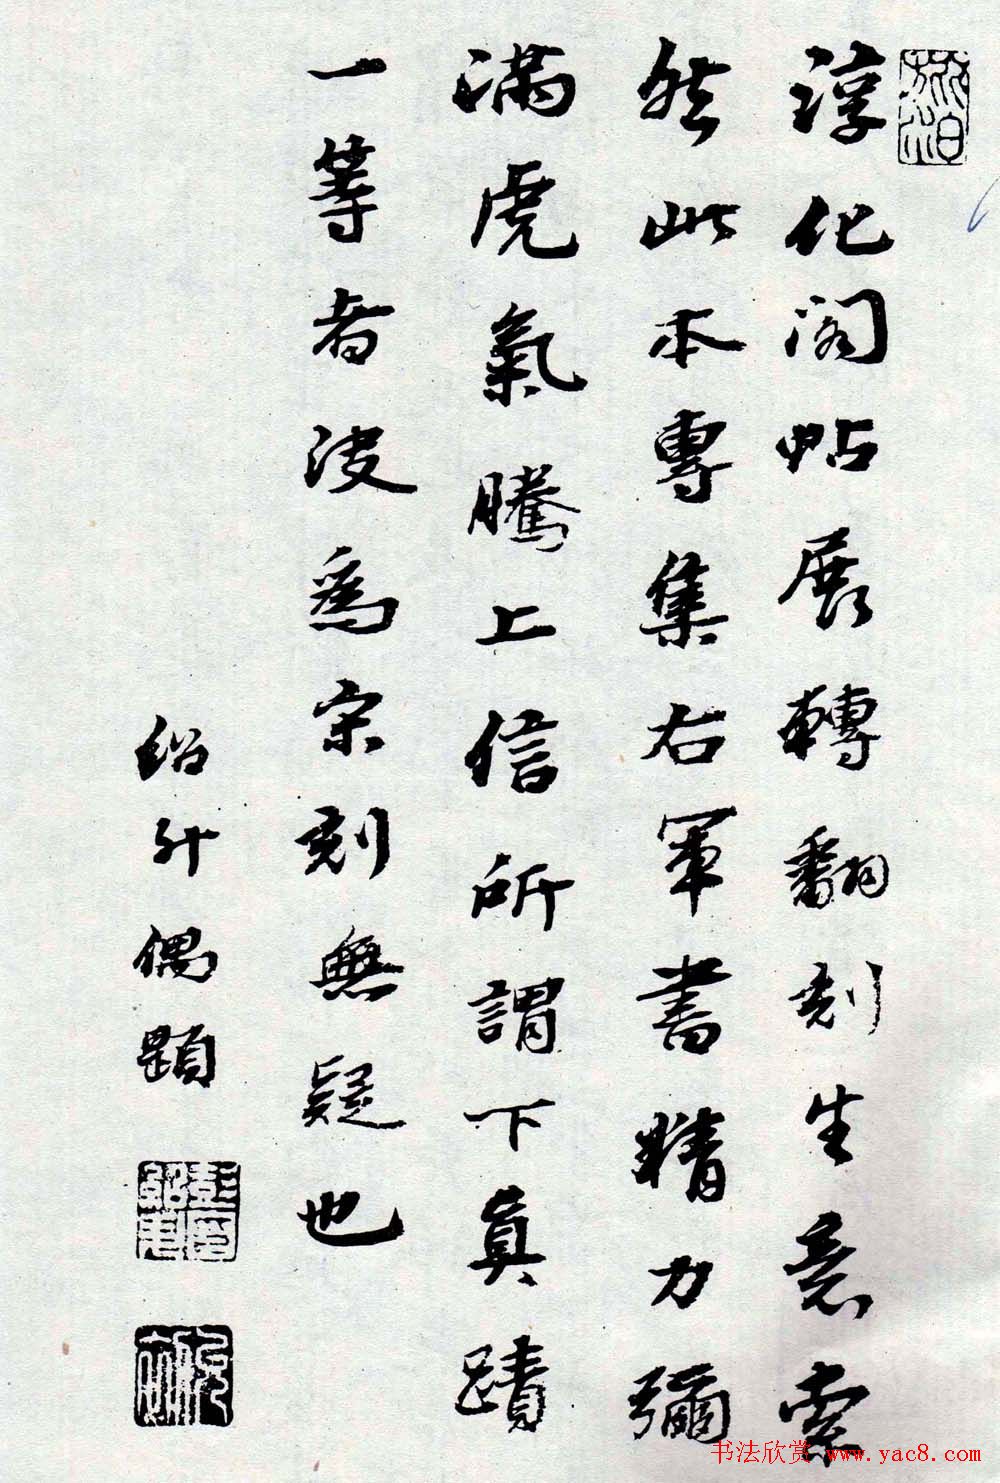 淳化阁帖展轉翻刻生意索
然此本專集右軍書精力彌
滿虎氣騰上信所謂下真蹟
一等者决為宗刻無疑也
紹升偶題
书法欣赏 www.yac8.com